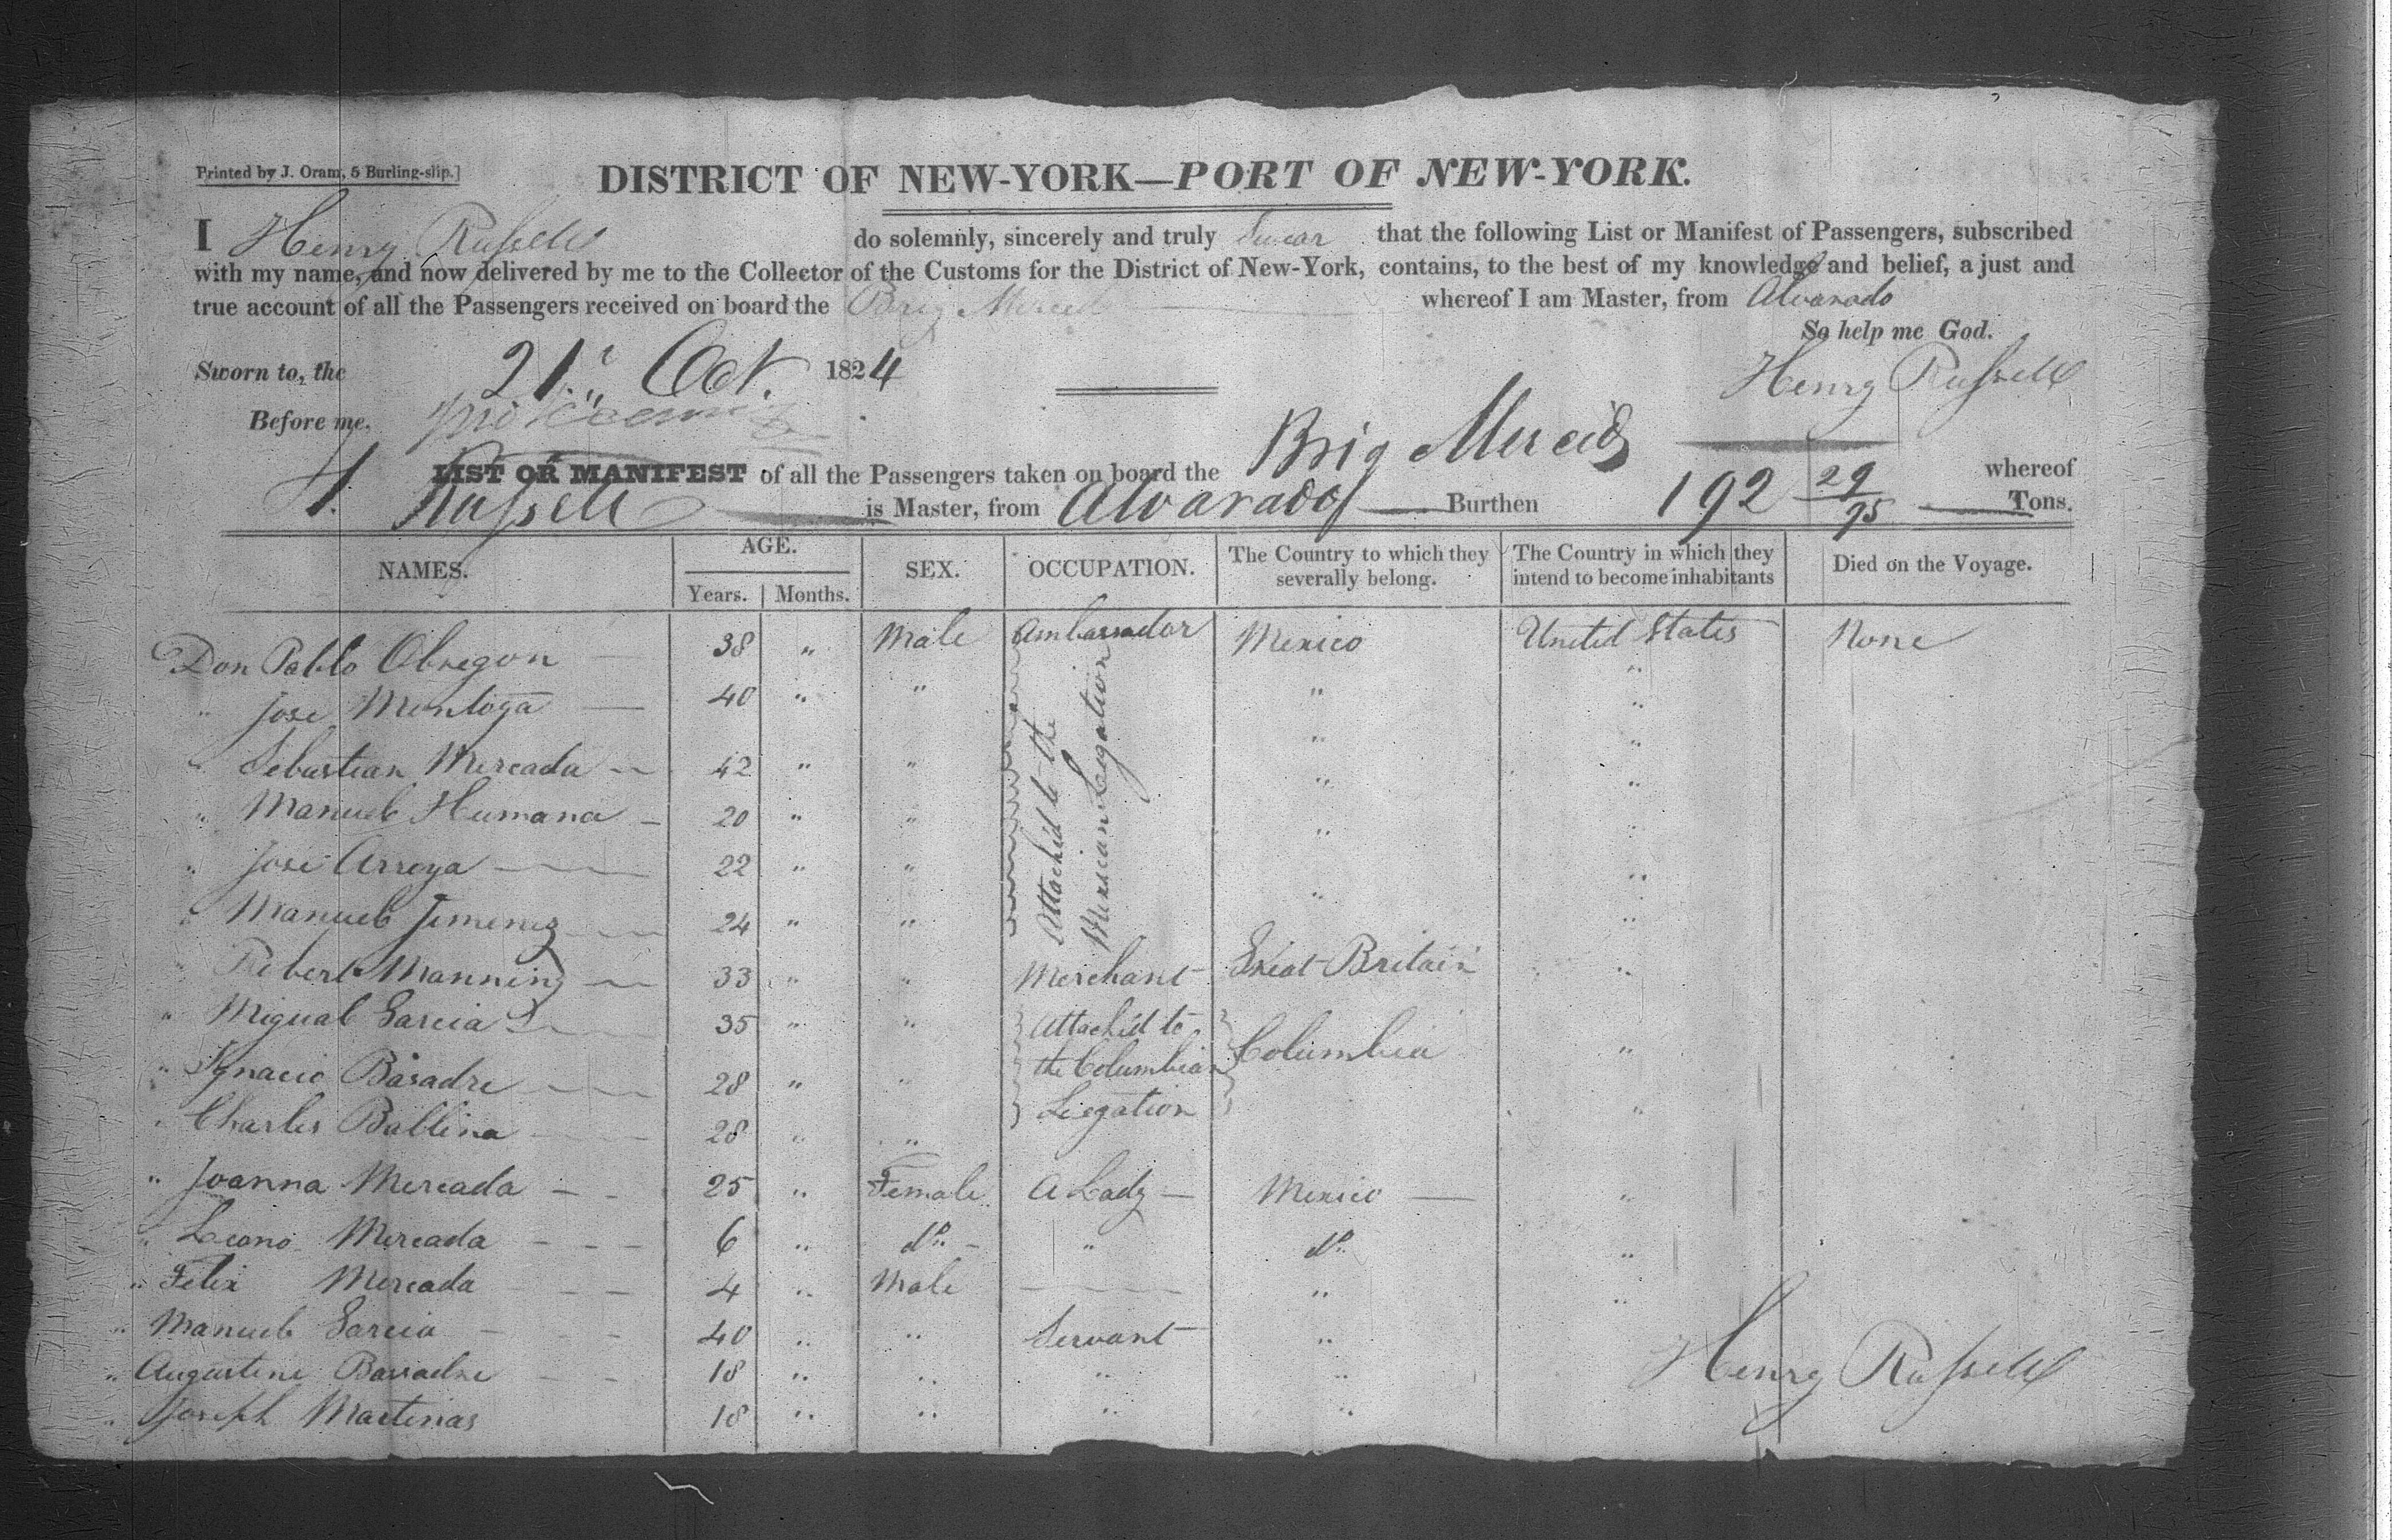 Printed by J. Oram, 5 Burling-slip.]
DISTRICT OF NEW-YORK—PORT OF NEW-YORK.
I Henry Russell do solemnly, sincerely and truly Swear that the following List or Manifest of Passengers, subscribed
with my name, and now delivered by me to the Collector of the Customs for the District of New-York, contains, to the best of my knowledge and belief, a just and
true account of all the Passengers received on board the Brig Merced whereof I am Master, from Alvarado
So help me God.
Sworn to, the 21st Oct. 1824
Henry Russell
Before me,
LIST OR MANIFEST of all the Passengers taken on board the Brig Merced whereof
H. Russell is Master, from Alvarado Burthen 192 29/95 Tons.
NAMES. AGE. SEX. OCCUPATION. The Country to which they severally belong. The Country in which they intend to become inhabitants Died on the Voyage.
Years. Months.
Don Pablo Obregon — 38 " Male Ambassador Mexico United States None
" Jose Montoya — 40 " " " "
" Sebastian Mercada 42 " " " "
" Manuel Humana 20 " " " "
" Jose Arroya 22 " " " "
" Manuel Jimenez 24 " " " "
Attachd to the
Mexican Legation
" Robert Manning 33 " " Merchant Great Britain "
" Migual Garcia 35 " " Attachd to
" Ignacio Basadre 28 " " the Columbian Columbia "
" Charles Ballina 28 " " Legation "
" Joanna Mercada 25 " Female A Lady Mexico "
" Leono Mercada 6 " do " do "
" Felix Mercada 4 " Male " "
" Manuel Garcia 40 " " Servant "
" Augustine Basadre 18 " " " "
" Joseph Martinas 18 " " " "
Henry Russell